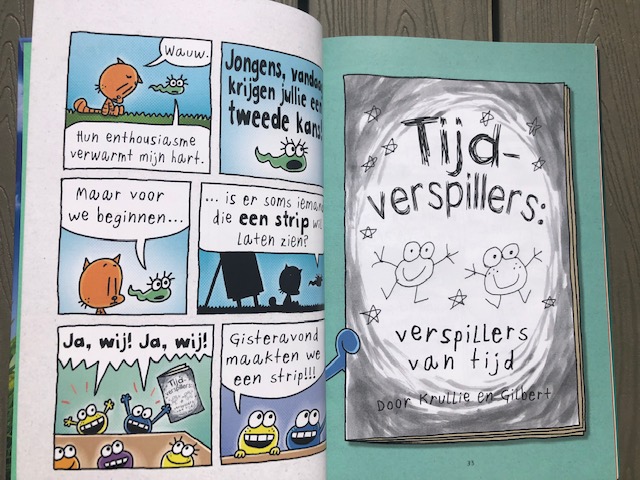 Wauw.
Hun enthousiasme
verwarmt mijn hart.
Jongens,
krijgen jullie
tweede
Maar voor
we beginnen...
... is er soms
die een strip
laten zien?
Ja, wij! Ja, wij!
Tijd-
verspillers:
Gisteravond
maakten we
een strip!!!
Tijd-
verspillers:
verspillers
van tijd
Door Krullie en Gilbert
33